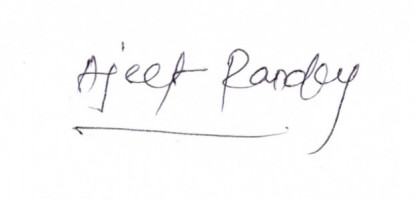 Ajeet Pandey